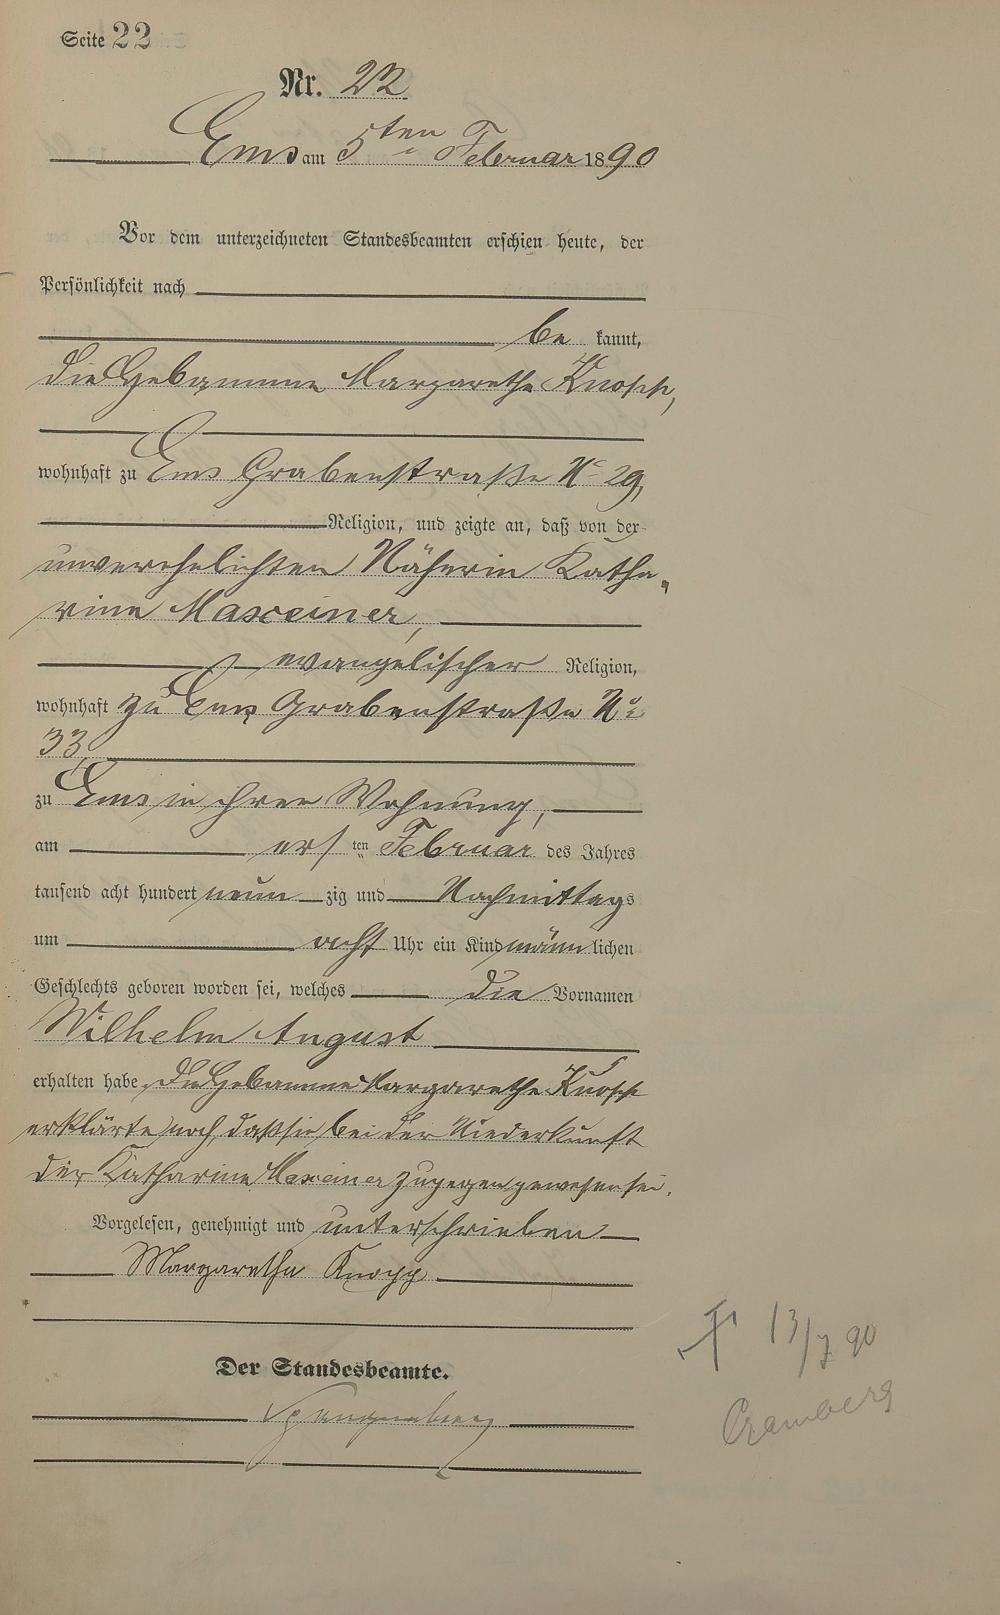 Seite 22
Nr. 22
Ems am 5ten Februar 1890
Vor dem unterzeichneten Standesbeamten erschien heute, der
Persönlichkeit nach
be kannt,
die Hebamme Margarethe Knopp,
wohnhaft zu Ems Grabenstraße No 29,
Religion, und zeigte an, daß von der
unverehelichten Näherin Katha-
rine Maxeiner,
evangelischer Religion,
wohnhaft zu Ems Grabenstraße No
33,
zu Ems in ihrer Wohnung,
am ersten Februar des Jahres
tausend acht hundert neun zig und Nachmittags
um acht Uhr ein Kind männlichen
Geschlechts geboren worden sei, welches die Vornamen
Wilhelm August
erhalten habe. Die Hebamme Margarethe Knopp
erklärte noch, daß sie bei der Niederkunft
der Katharine Maxeiner zugegen gewesen sei.
Vorgelesen, genehmigt und unterschrieben
Margaretha Knopp
Der Standesbeamte.
Spangenberg
† 13/7 90
Cramberg